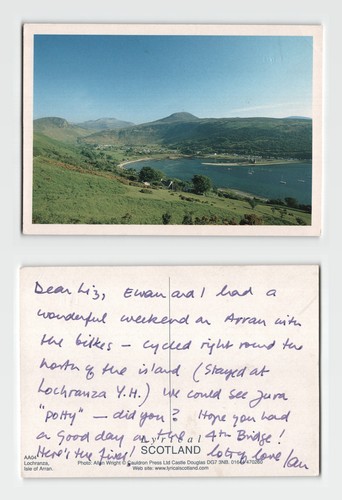 Dear Liz, Ewan and I had a
wonderful weekend on Arran with
the bikes – cycled right round the
north of the island (Stayed at
Lochranza Y.H.) We could see Jura
"potty" – did you? Hope you had
a Good day on the 4th Bridge!
Here's the lives! lots of love Ian
Lyrical
SCOTLAND
AA04
Lochranza,
Isle of Arran.
Photo: Allan Wright © Cauldron Press Ltd Castle Douglas DG7 3NB. 01644 470260
Web site: www.lyricalscotland.com